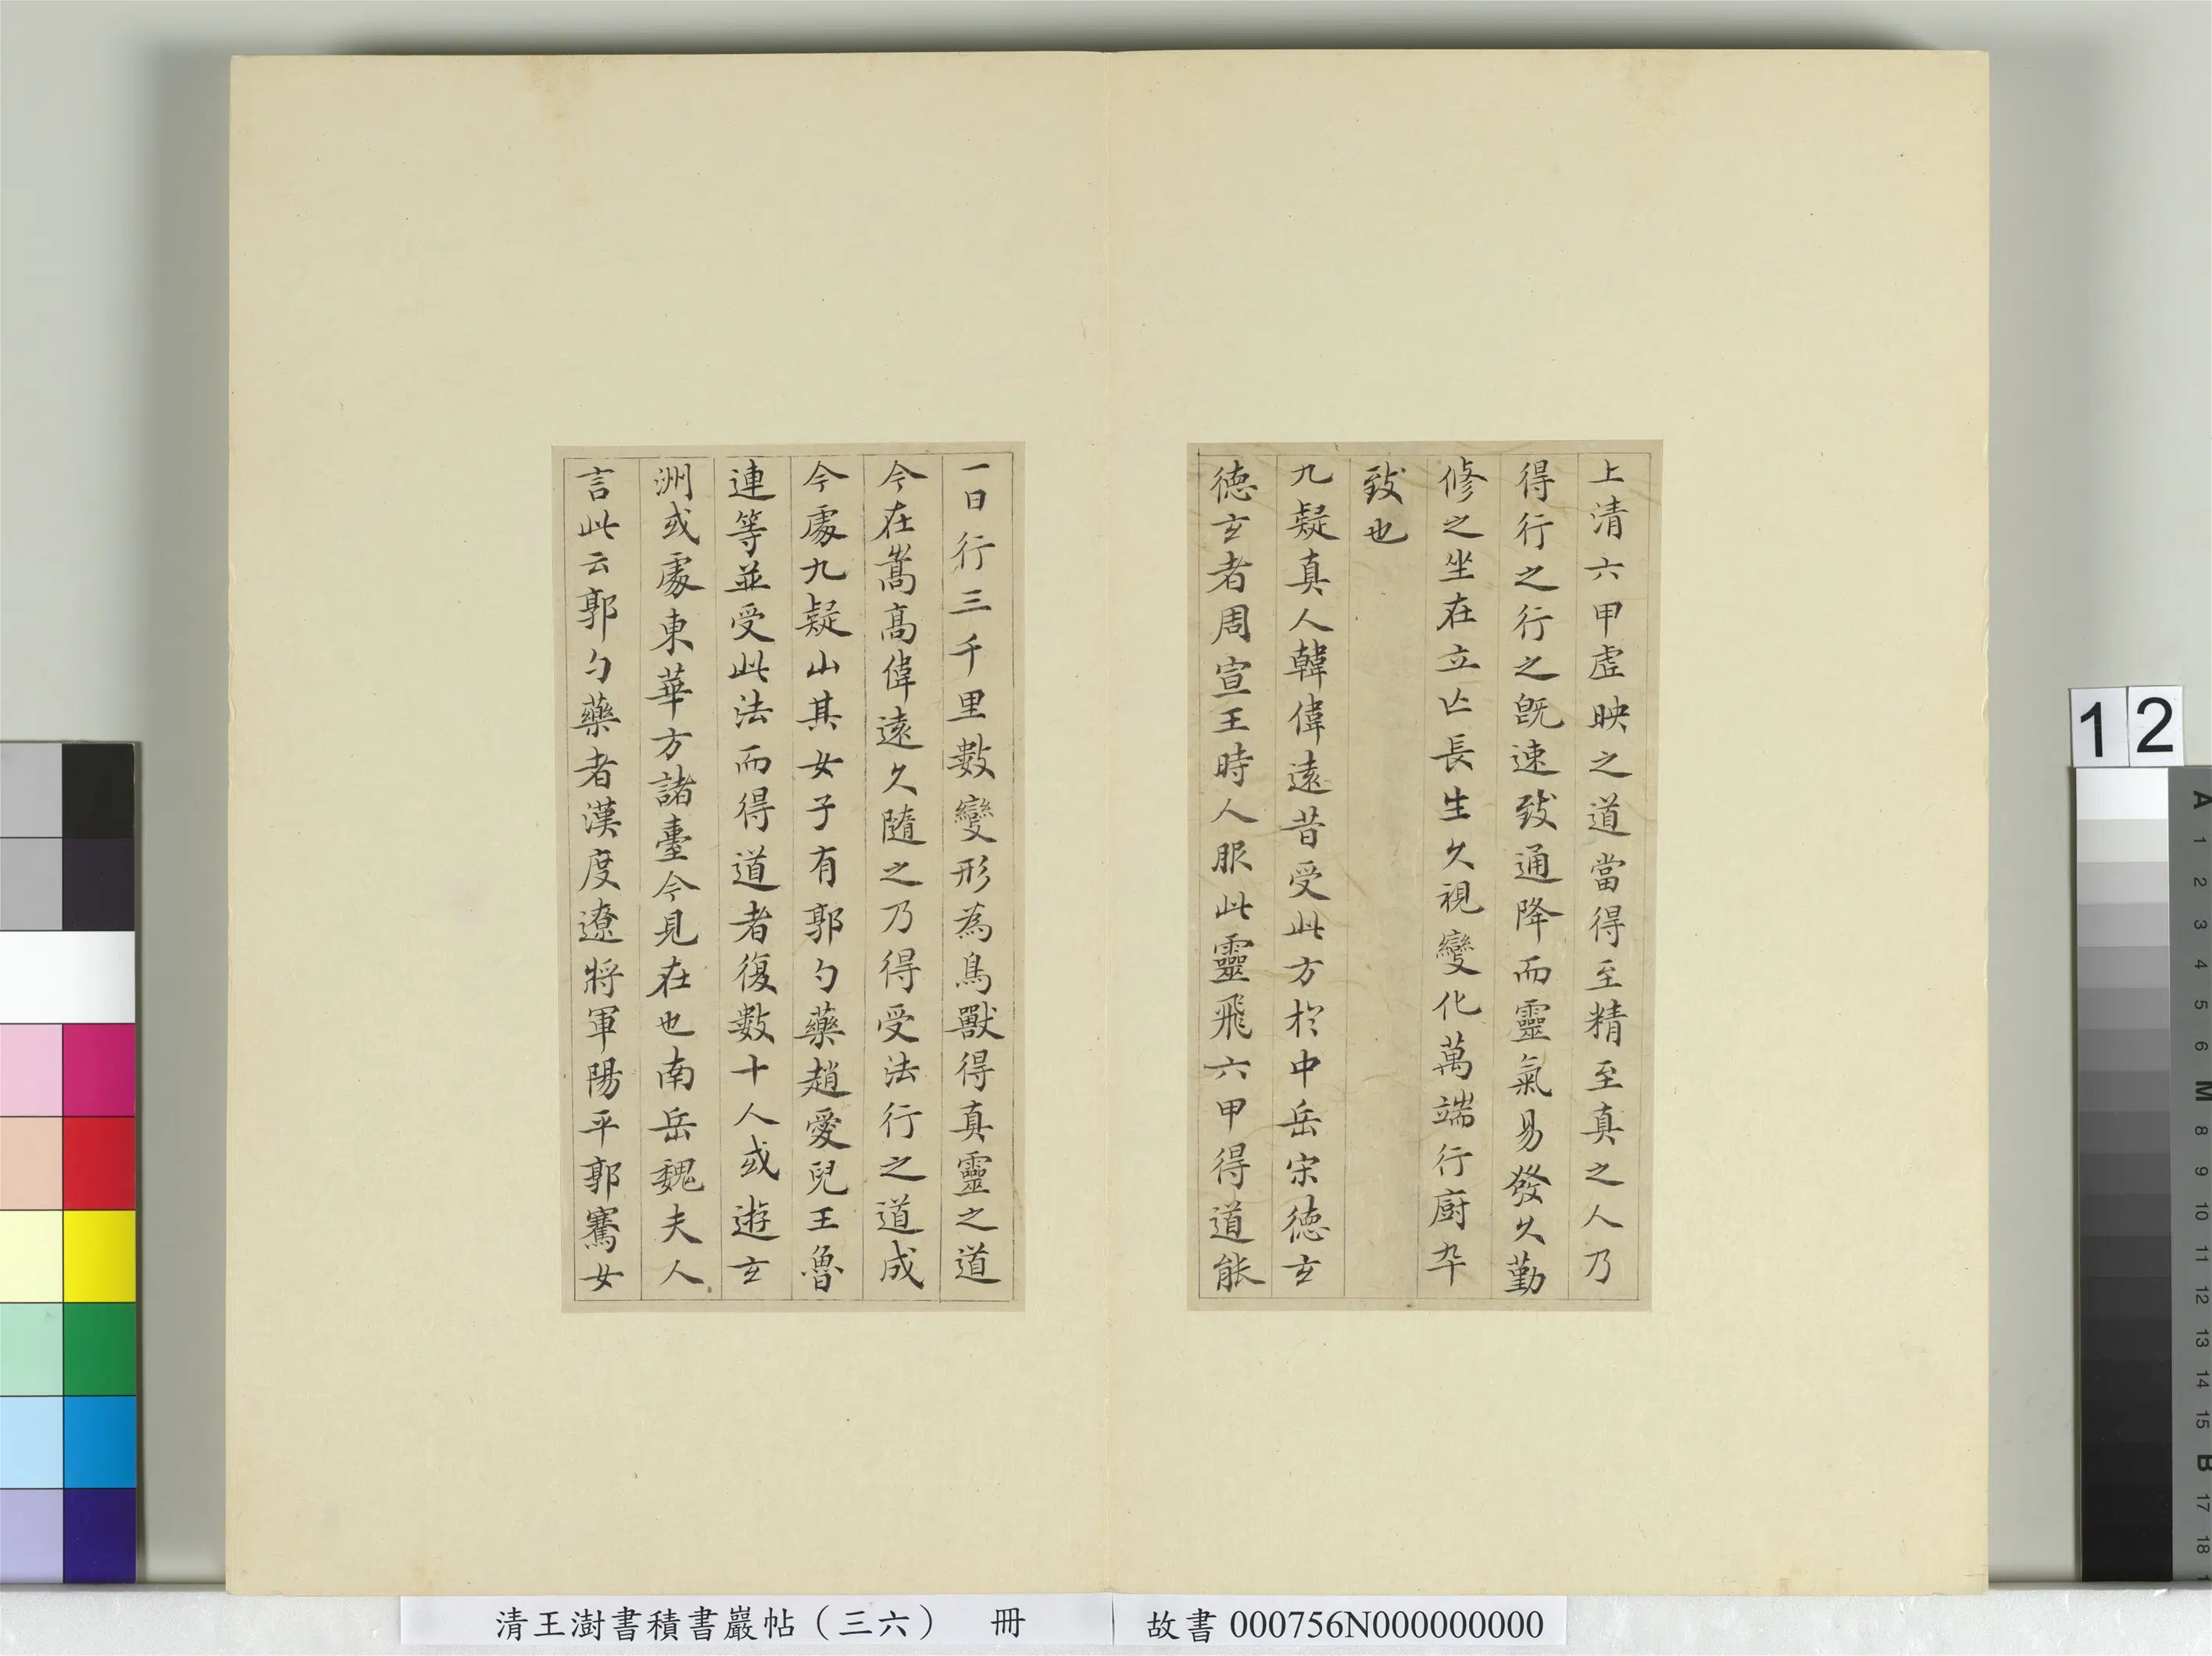 上清六甲虛映之道當得至精至真之人乃
得行之行之既速致通降而靈氣易發久勤
修之坐在立亡長生久視變化萬端行廚卒
致也
九疑真人韓偉遠昔受此方於中岳宋德玄
德玄者周宣王時人服此靈飛六甲得道能
一日行三千里數變形為鳥獸得真靈之道
今在嵩高偉遠久隨之乃得受法行之道成
今處九疑山其女子有郭勺藥趙愛兒王魯
連等並受此法而得道者復數十人或遊玄
洲或處東華方諸臺今見在也南岳魏夫人
言此云郭勺藥者漢度遼將軍陽平郭騫女
12
A 1 2 3 4 5 6 M 8 9 10 11 12 13 14 15 B 17 18
清王澍書積書巖帖（三六） 冊
故書000756N000000000